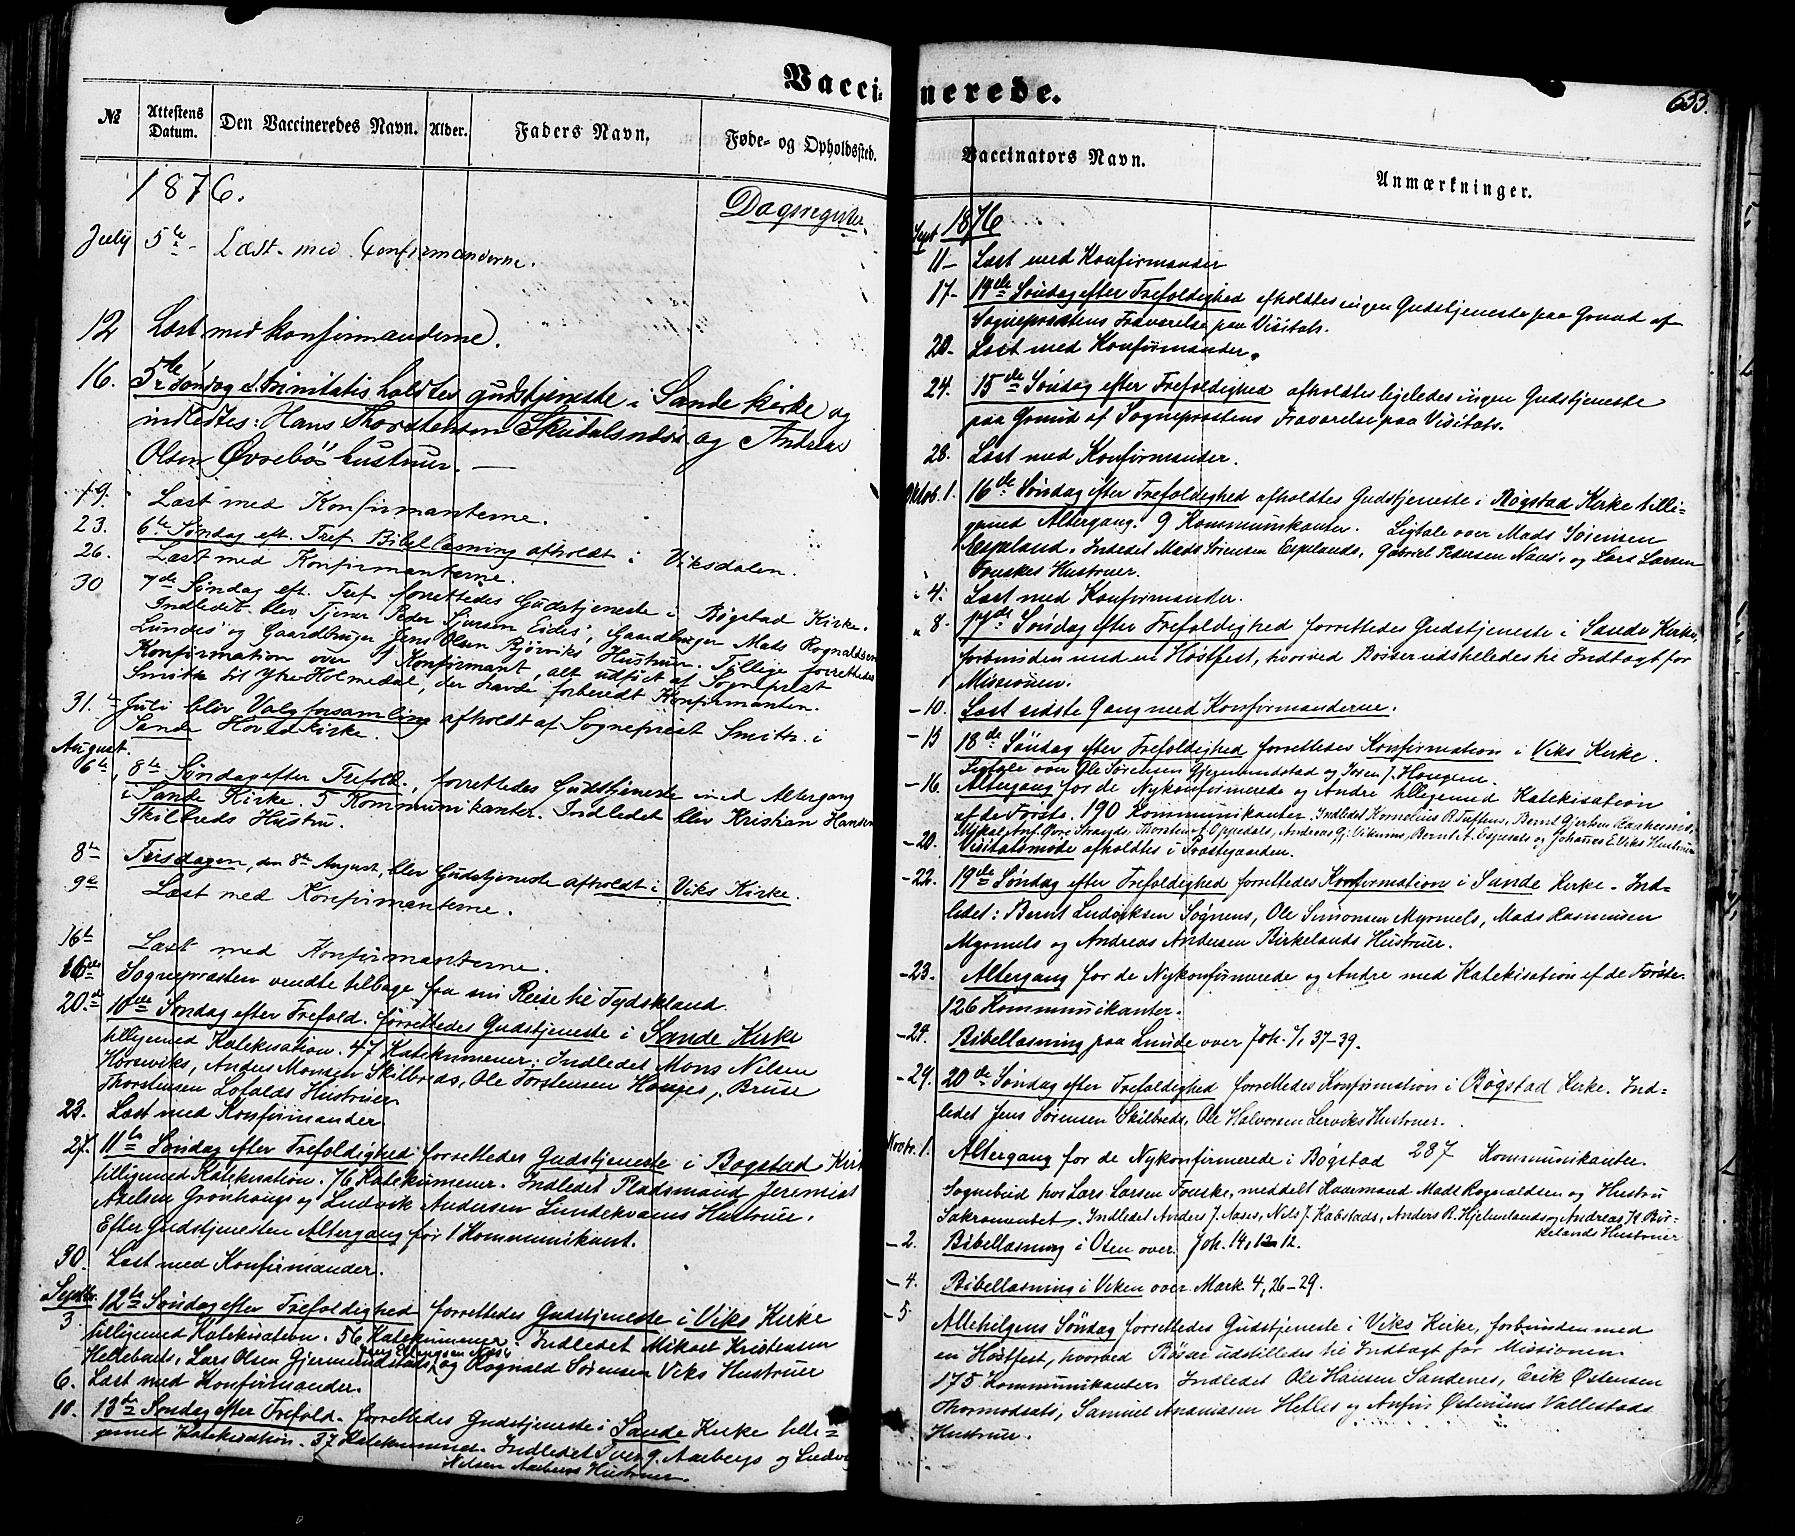 Vacci=
№
Attestens Datum.
Den Vaccineredes Navn.
Alder.
Faders Navn.
Føde- og Opholdssted.
1876.
Dagsregister.
July 5te Læst med Confirmanderne.
12 Læst med konfirmanderne.
16. 5te Søndag e. trinitatis holdtes gudstjeneste i Sande kirke og
indledtes: Hans Thorstensen Skudalsnæs og Andreas
Olsen Øvrebös hustruer. —
19. Læst med Konfirmanterne.
23. 6te Søndag eft. Tref. Bibellæsning afholdt i Viksdalen.
26. Læst med Konfirmanterne.
30 7de Søndag eft. Tref. forrettedes Gudstjeneste i Bøgstad Kirke.
Indledet blev Tjener Peder Sjursen Eides, Gaardbruger Mads Rognaldsen
Lundes og Gaardbruger Jens Olsen Bjørviks Hustruer. Tillige forrettedes
Konfirmation over 1 Konfirmant, alt udført af Sognepræst
Smith til Ytre Holmedal, der havde forberedt Konfirmanten.
31. Juli blev Valgforsamling afholdt af Sognepræst Smith i
Sande Hovedkirke.
August.
6te, 8te Søndag efter Trefold., forrettedes Gudstjeneste med Altergang
i Sande Kirke. 5 Kommunikanter. Indledet blev Kristian Hansen
Skilbreds Hustru.
8te Tirsdagen, den 8te August, blev Gudstjeneste afholdt i Viks Kirke.
9de Læst med Konfirmanterne.
16te Læst med Konfirmanterne.
16de Sognepræsten vendte tilbage fra sin Reise til Tydskland.
20de 10de Søndag efter Trefold. forrettedes Gudstjeneste i Sande Kirke
tilligemed Katekisation. 47 Katekumener. Indledet Mons Nilsen
Horsviks, Anders Monsen Skilbreds, Ole Torstensen Hauges, Brune
Thorstensen Lofalds Hustruer
23. Læst med Konfirmander
27. 11te Søndag efter Trefoldighed forrettedes Gudstjeneste i Bøgstad Kirke
tilligemed Katekisation. 76 Katekumener. Indledet Pladsmand Jeremias
Axelsen Grønhaugs og Ludvik Andersen Lundekvams Hustruer.
Efter Gudstjenesten Altergang for 1 Kommunikant.
30. Læst med Konfirmander.
Septbr.
3 12te Søndag efter Trefoldighed forrettedes Gudstjeneste i Viks Kirke
tilligemed Katekisation. 56 Katekumener. Indledet Mikael Kristensen
Hellebøets, Lars Olsen Gjermundstads, og Rognald Sørensen Viks Hustruer
6. Læst med Konfirmander.
10. 13de Søndag efter Trefold. forrettedes Gudstjeneste i Sande Kirke tilli=
gemed Katekisation. 37 Katekumener. Indledet Iver G. Aarbergs og Ludvig
Nilsen Aarbergs Hustruer.
nerede.
633.
Vaccinators Navn.
Anmærkninger.
Sept 1876
11- Læst med Konfirmander
17- 14de Søndag efter Trefoldighed afholdtes ingen Gudstjeneste paa Grund af
Sogneprestens Fraværelse paa Visitats.
20- Læst med Konfirmander.
24. 15de Søndag efter Trefoldighed afholdtes ligeledes ingen Gudstjeneste
paa Grund af Sogneprestens Fraværelse paa Visitats.
28. Læst med Konfirmander.
Oktob. 1. 16de Søndag efter Trefoldighed afholdtes Gudstjeneste i Bøgstad Kirke tilli=
gemed Altergang. 9 Kommunikanter. Ligtale over Mads Sørensen
Espeland. Indledet Mads Sørensen Espelands, Gabriel Larsen Naus. og Lars Larsen
Fauskes Hustruer.
" 4. Læst med Konfirmander.
" 8. 17de Søndag efter Trefoldighed forrettedes Gudstjeneste i Sande Kirke,
forbunden med en Høstfest, hvorved Bøsser udstilledes til Indtægt for
Missionen.
- 10. Læst sidste Gang med Konfirmanderne.
- 15 18de Søndag efter Trefoldighed forrettedes Konfirmation i Viks Kirke.
Ligtale over Ole Sørensen Gjermundstad og Joren J. Haugen.
- 16. Altergang for de Nykonfirmerede og Andre tilligemed Katekisation
af de Første. 190 Kommunikanter. Indledet Kornelius R. Tuftens, Bernt Gjertsen Raskeims,
Mikal Strands, Thorsten A. Oppedals, Andreas G. Vikums, Bernt A. Espesets og Johannes E. Viks Hustruer
- 20. Visitatsmøde afholdtes i Præstegaarden.
- 22. 19de Søndag efter Trefoldighed forrettedes Konfirmation i Sande Kirke. Ind=
ledet: Bernt Ludviksen Sognens, Ole Simonsen Myrmels, Mads Rasmussen
Myrmels og Andreas Andersen Birkelands Hustruer.
- 23. Altergang for de Nykonfirmerede og Andre med Katekisation af de Første.
126 Kommunikanter.
- 24. Bibellæsning paa Lunde over Joh. 7, 37-39.
- 29. 20de Søndag efter Trefoldighed forrettedes Konfirmation i Bøgstad Kirke. Ind=
ledet Jens Sørensen Skilbreds, Ole Halvorsen Lerviks Hustruer.
Novbr. 1. Altergang for de Nykonfirmerede i Bøgstad 287 Kommunikanter.
Sognebud hos Lars Larsen Fauske, meddelt Kaarmand Mads Rognaldsen og Hustru
Sakramentet. Indledet Anders J. Aases, Nils J. Kalstads, Anders R. Hjelmelands og Andreas H. Bir-
kelands Hustruer
- 2. Bibellæsning i Osen over Joh. 14, 12.
- 4. Bibellæsning i Viken over Mark 4, 26-29.
- 5. Allehelgens Søndag forrettedes Gudstjeneste i Viks Kirke, forbunden med
en Høstfest, hvorved Bøsser udstilledes til Indtægt for Missionen.
175 Kommunikanter. Indledet Ole Hansen Sandenes, Erik Østensen
Thormodsæts, Samuel Ananiasen Hetles og Anfin Østensens Vallestads
Hustruer.